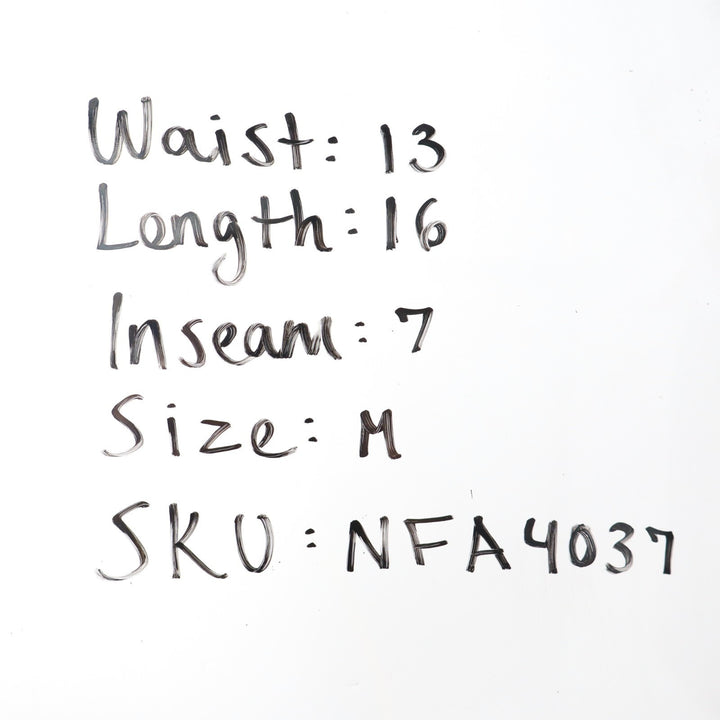 Waist: 13
Length: 16
Inseam: 7
Size: M
SKU: NFA4037